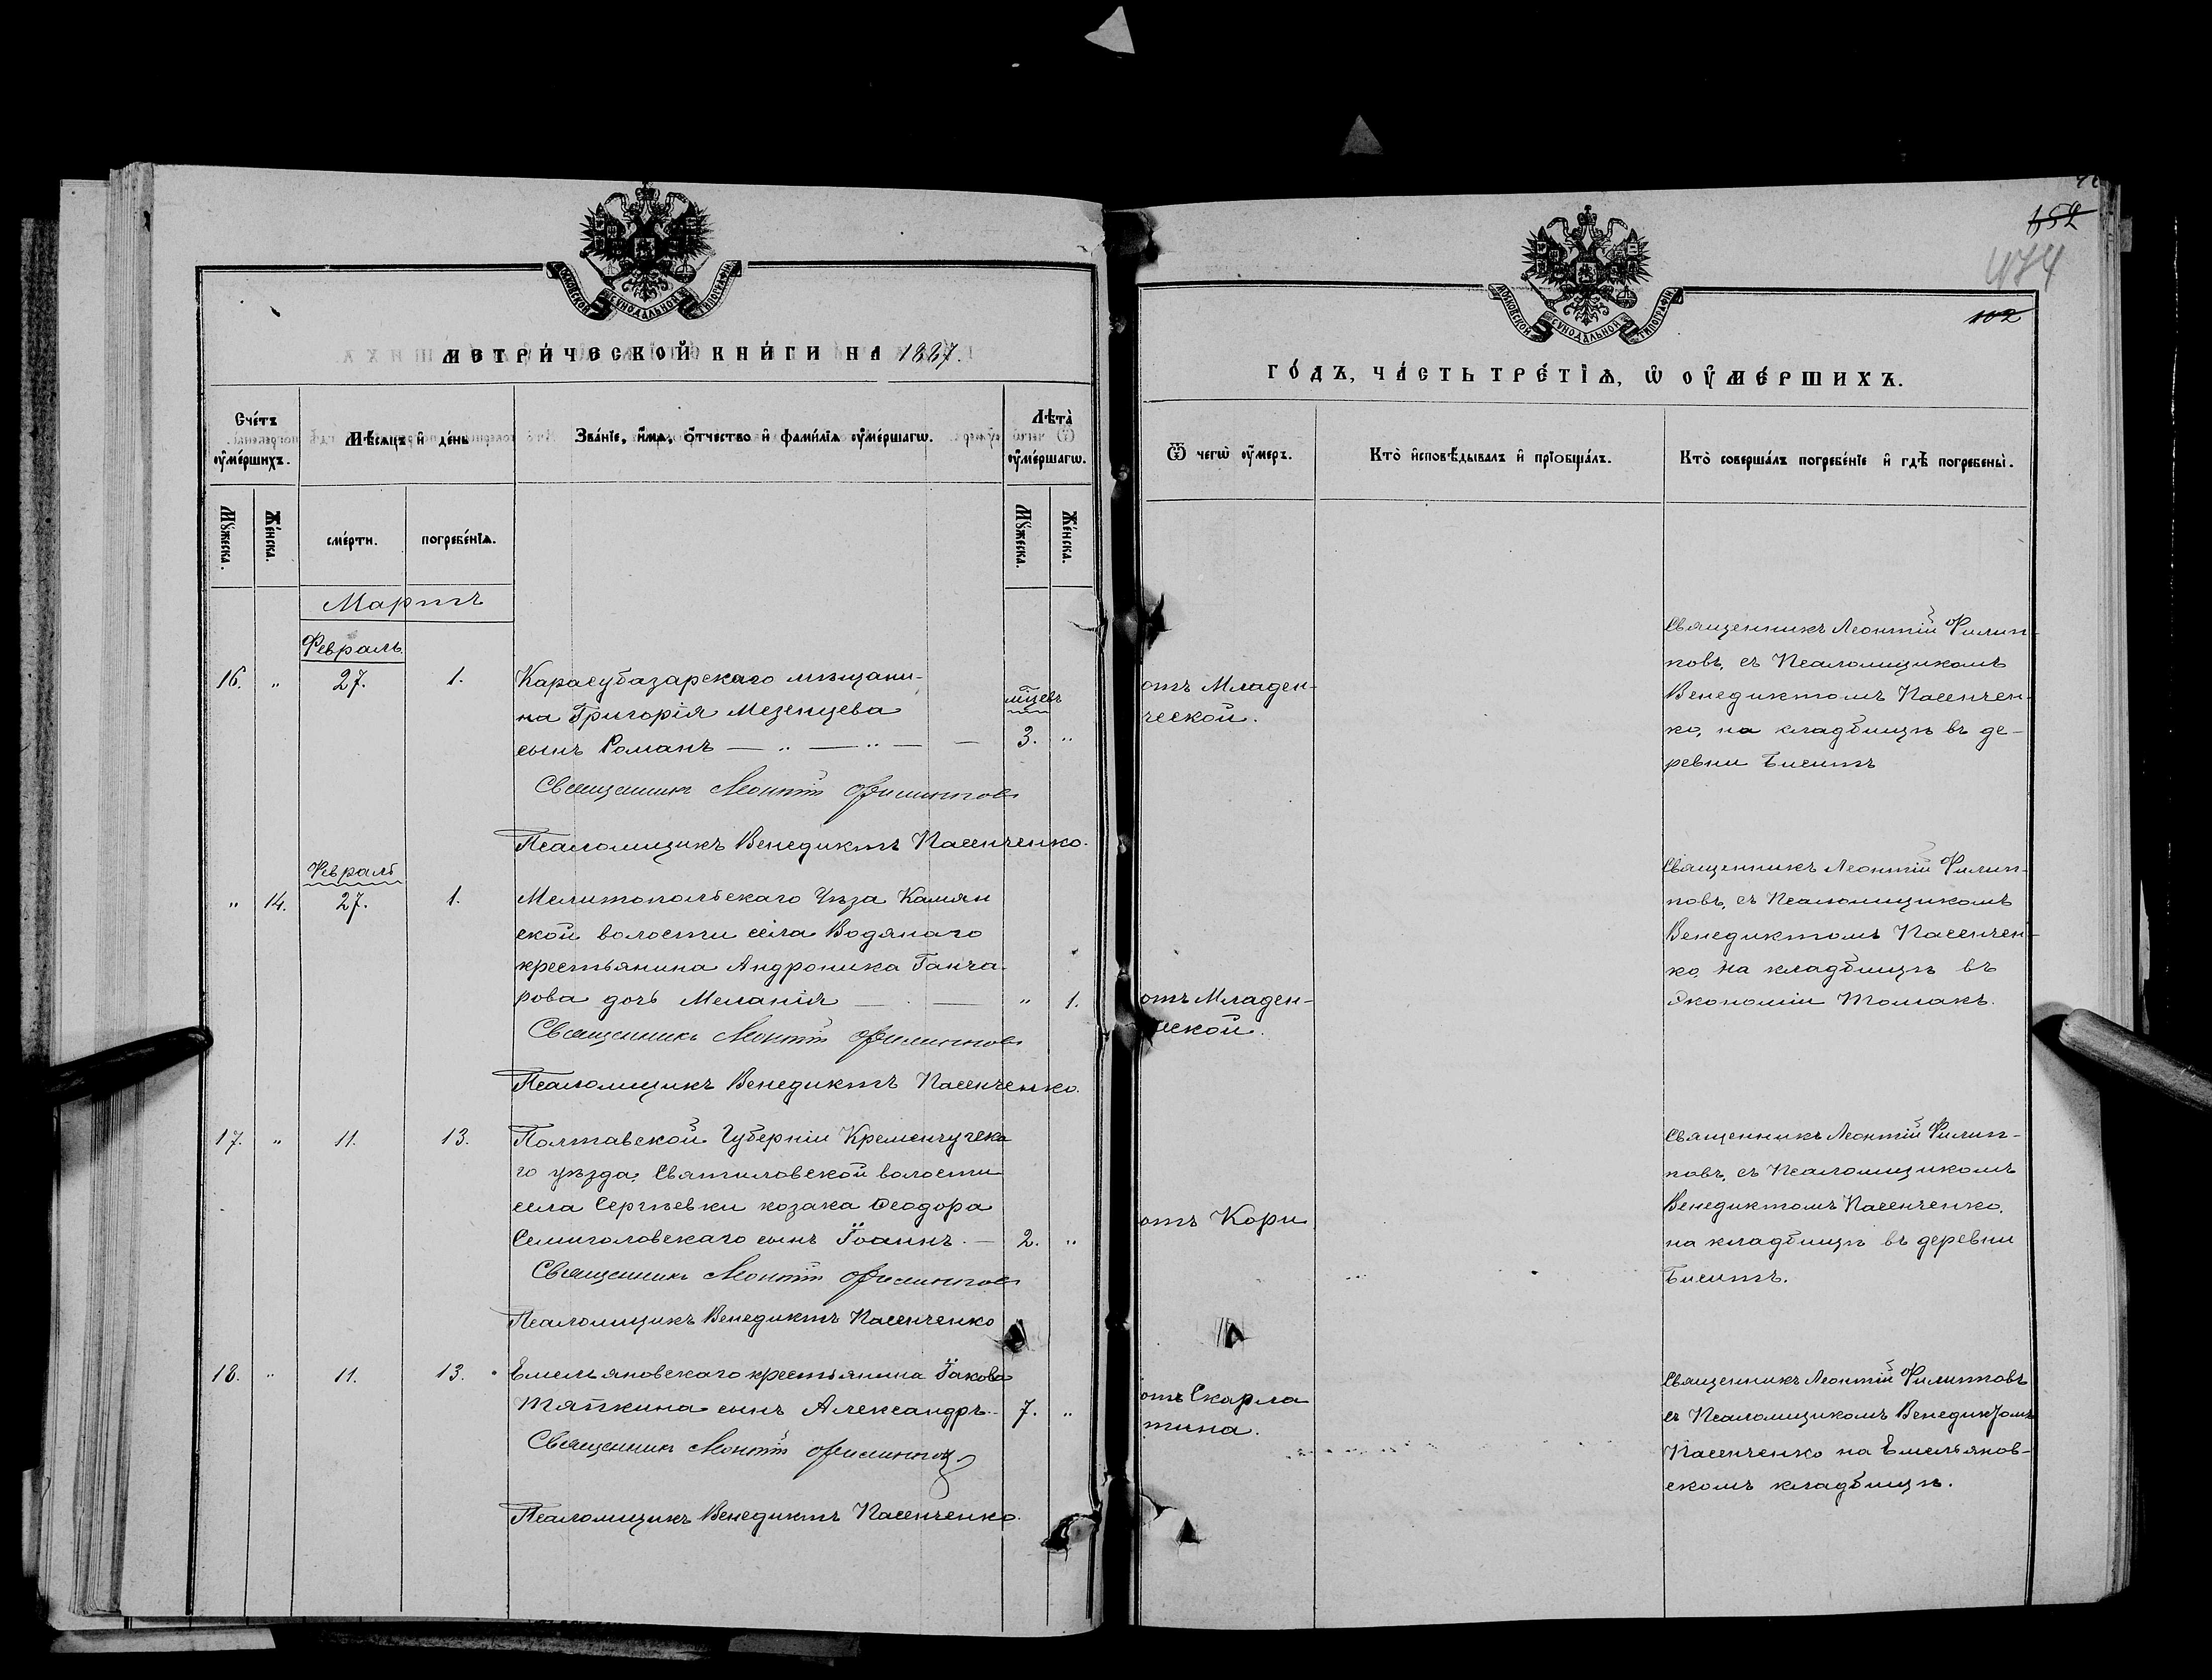 МОСКОВСКОЙ СѴНОДАЛЬНОЙ ТИПОГРАФІИ
МЕТРИ́ЧЕСКОЙ КНИ́ГИ НА 1887.
Сче́тъ оу҆ме́ршихъ.
Мѣ́сѧцъ и҆ де́нь
Зва́нїе, и҆́мѧ, ѻ҆́тчество и҆ фамі́лїѧ оу҆ме́ршагѡ.
Лѣ́та оу҆ме́ршагѡ.
Мꙋ́жеска.
Же́нска.
сме́рти.
погребе́нїѧ.
Мꙋ́жеска.
Же́нска.
Мартъ
Февраль
16. " 27. 1. Карасубазарскаго мѣщани-
на Григорія Мезенцева мѣсцевъ
сынъ Романъ — " — " — — 3. "
Священникъ Леонтій Филипповъ
Псаломщикъ Венедиктъ Пасенченко.
Февраль
" 14. 27. 1. Мелитопольскаго Уѣзда Камян
ской волости села Водянаго
крестьянина Андроника Ганча-
рова дочь Меланія — . — " 1.
Священникъ Леонтій Филипповъ
Псаломщикъ Венедиктъ Пасенченко.
17. " 11. 13. Полтавской Губерніи Кременчугска
го уѣзда, Святиловской волости
села Сергѣевки козака Ѳеодора
Семиголовскаго сынъ Іоаннъ. — 2. "
Священникъ Леонтій Филипповъ
Псаломщикъ Венедиктъ Пасенченко
18. " 11. 13. Емельяновскаго крестьянина Іакова
Тяпкина сынъ Александръ.. 7. "
Священникъ Леонтій Филипповъ
Псаломщикъ Венедиктъ Пасенченко.
152
474
102
МОСКОВСКОЙ СѴНОДАЛЬНОЙ ТИПОГРАФІИ
ГО́ДЪ, ЧА́СТЬ ТРЕ́ТЇѦ, Ѡ҆ ОУ҆МЕ́РШИХЪ.
Ѿ чегѡ̀ оу҆́меръ.
Кто̀ и҆сповѣ́дывалъ и҆ прїобща́лъ.
Кто̀ соверша́лъ погребе́нїе и҆ гдѣ̀ погребены̀.
отъ Младен-
ческой.
Священникъ Леонтій Филип-
повъ, съ Псаломщикомъ
Венедиктомъ Пасенчен-
ко, на кладбищѣ въ де-
ревни Биситъ
отъ Младен-
ческой.
Священникъ Леонтій Филип-
повъ, съ Псаломщикомъ
Венедиктомъ Пасенчен-
ко, на кладбищѣ въ
Экономіи Томакъ.
отъ Кори
Священникъ Леонтій Филип-
повъ, съ Псаломщикомъ
Венедиктомъ Пасенченко,
на кладбищѣ въ деревни
Биситъ.
отъ Скарла
тина.
Священникъ Леонтій Филипповъ
съ Псаломщикомъ Венедиктомъ
Пасенченко на Емельянов-
скомъ кладбищѣ.